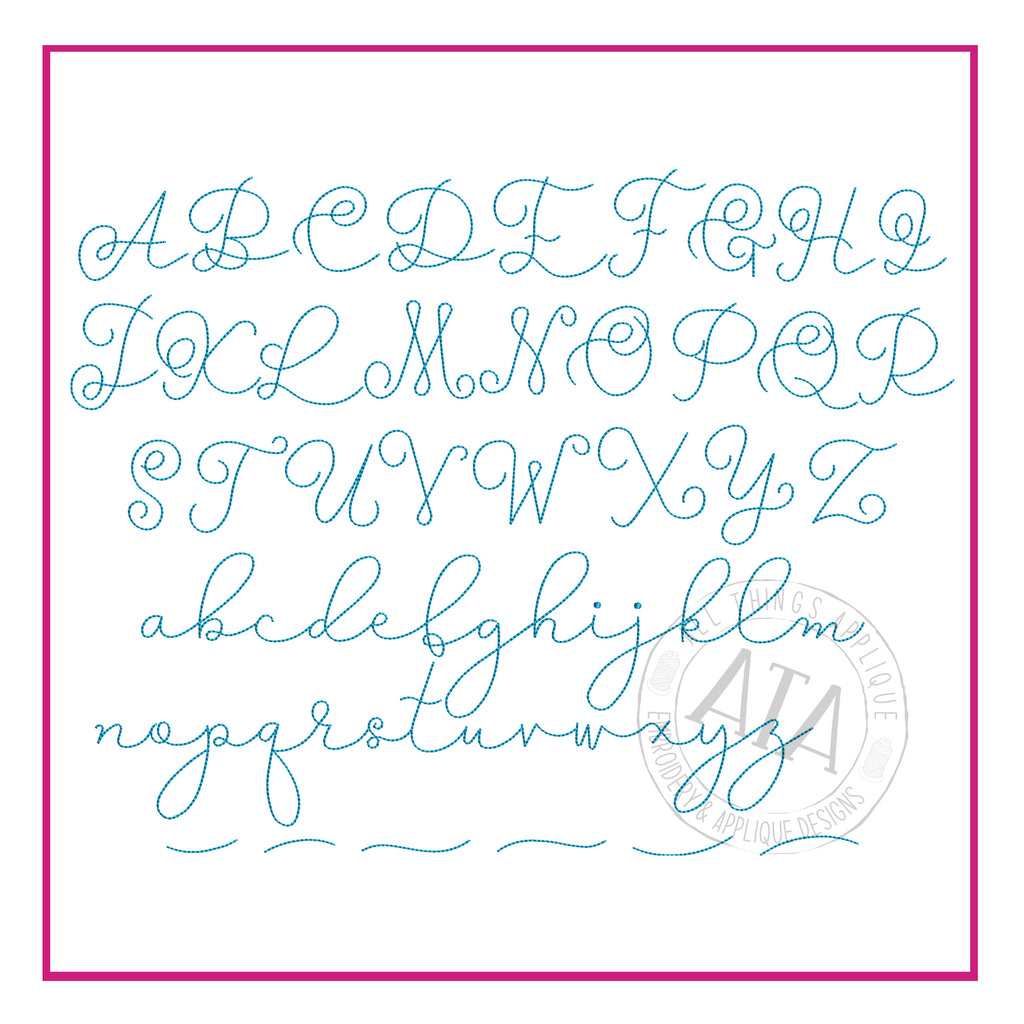 ABCDEFGHI
JKLMNOPQR
STUVWXYZ
abcdefghijklm
nopqrstuvwxyz
ALL THINGS APPLIQUE
ATA
EMBROIDERY & APPLIQUE DESIGNS